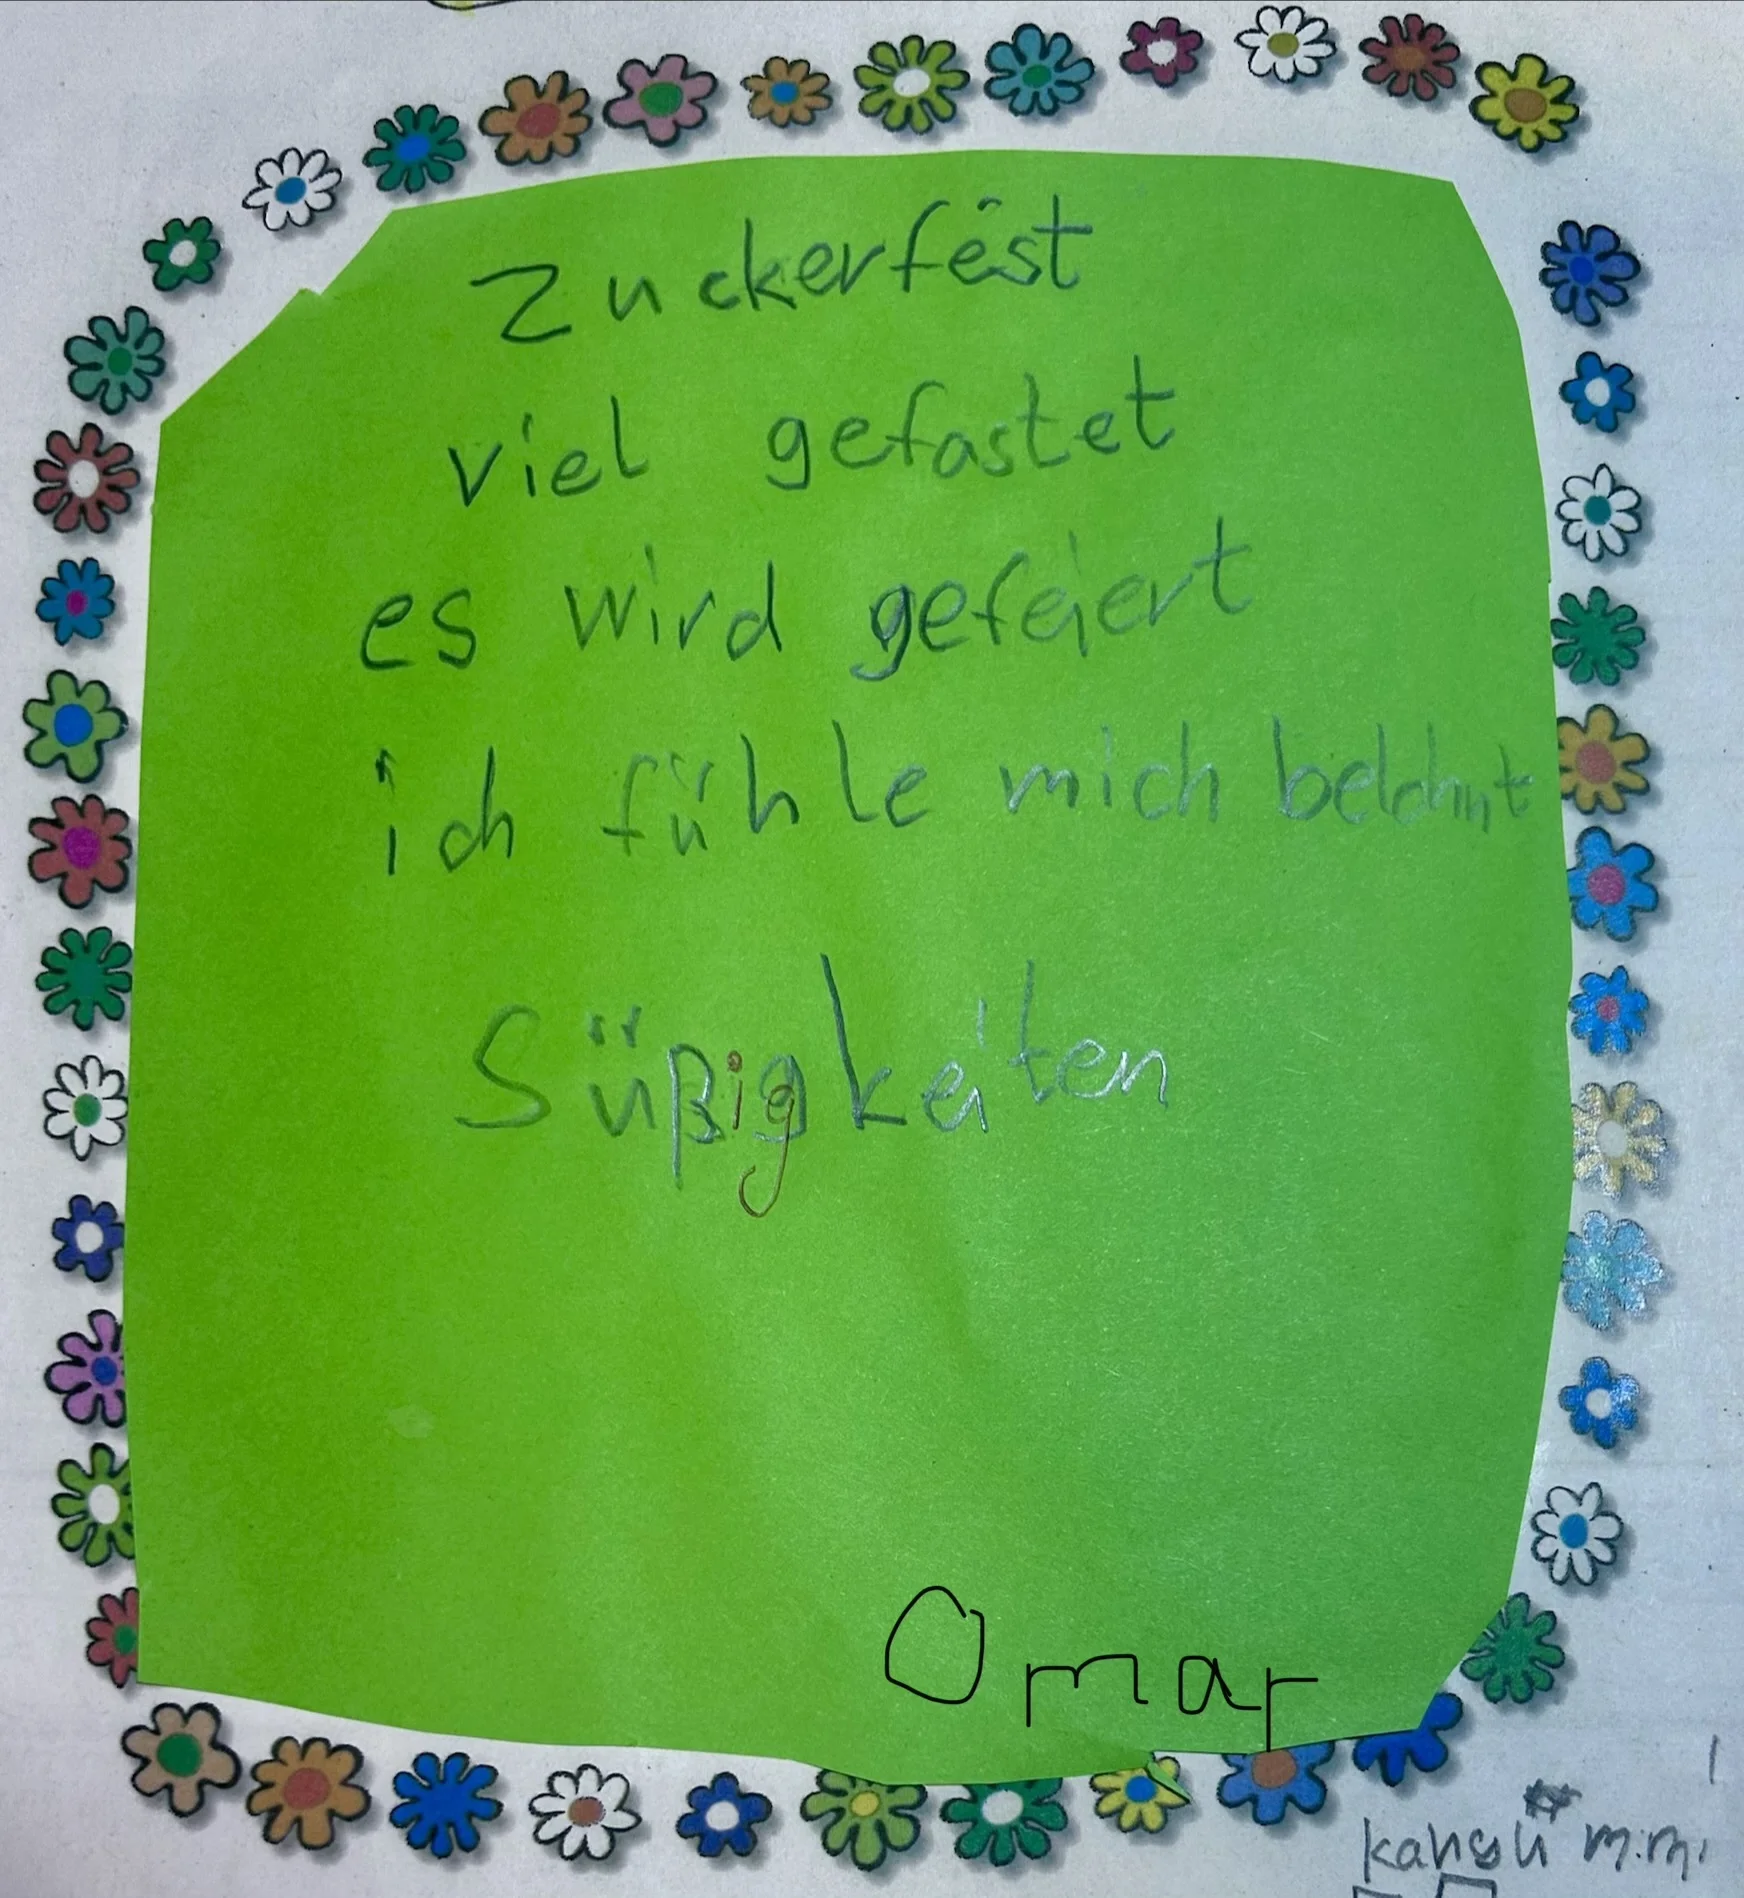 Zuckerfest
viel gefastet
es wird gefeiert
ich fühle mich belohnt
Süßigkeiten
Omar